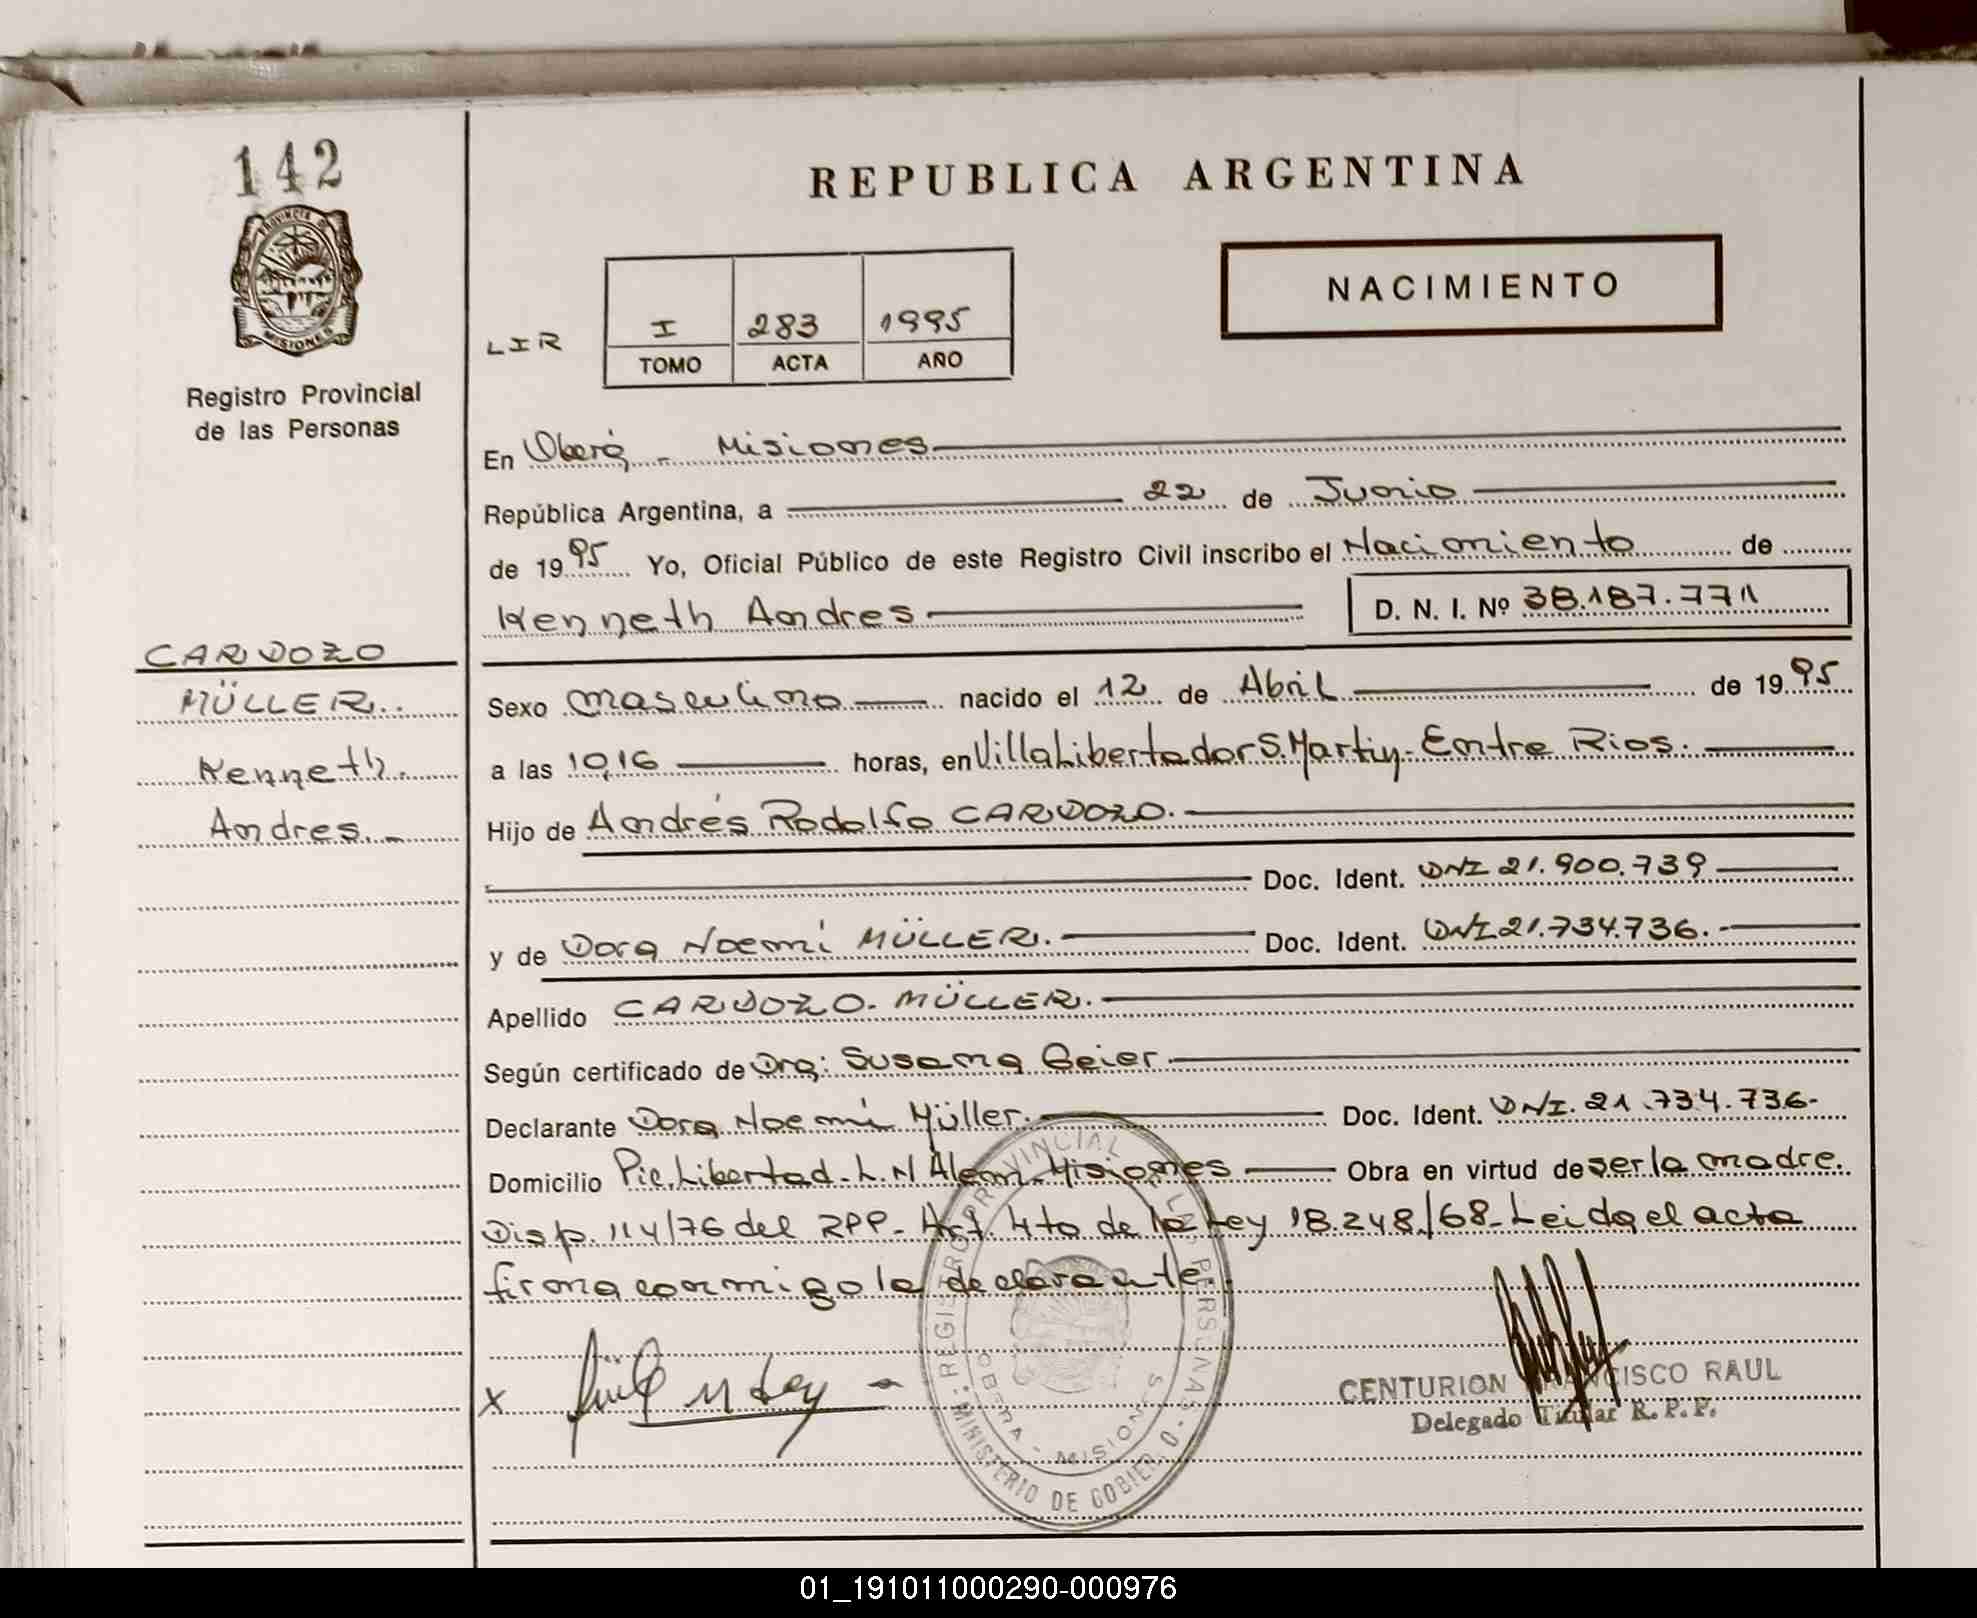 142
PROVINCIA DE
MISIONES
Registro Provincial
de las Personas
CARDOZO
MÜLLER.
Kenneth.
Andres.-
REPUBLICA ARGENTINA
NACIMIENTO
LIR
I 283 1995
TOMO ACTA AÑO
En Oberá - Misiones
República Argentina, a 22 de Junio
de 1995 Yo, Oficial Público de este Registro Civil inscribo el Nacimiento de
Kenneth Andres D. N. I. Nº 38.187.771
Sexo masculino nacido el 12 de Abril de 1995
a las 10,16 horas, en Villa Libertador S. Martin - Entre Rios.
Hijo de Andrés Rodolfo CARDOZO.
Doc. Ident. DNI 21.900.739
y de Dora Noemí MÜLLER. Doc. Ident. DNI 21.734.736.-
Apellido CARDOZO - MÜLLER.
Según certificado de Dra: Susana Geier
Declarante Dora Noemí Müller. Doc. Ident. DNI. 21.734.736-
Domicilio Pic. Libertad - L. N Alem - Misiones Obra en virtud de ser la madre.
Disp. 114/76 del RPP - Art. 4to de la Ley 18.248/68 - Leida el acta
firma conmigo la declarante.
x
REGISTRO PROVINCIAL DE LAS PERSONAS
OBERA - MISIONES
MINISTERIO DE GOBIERNO
CENTURION FRANCISCO RAUL
Delegado Titular R. P. P.
01_191011000290-000976